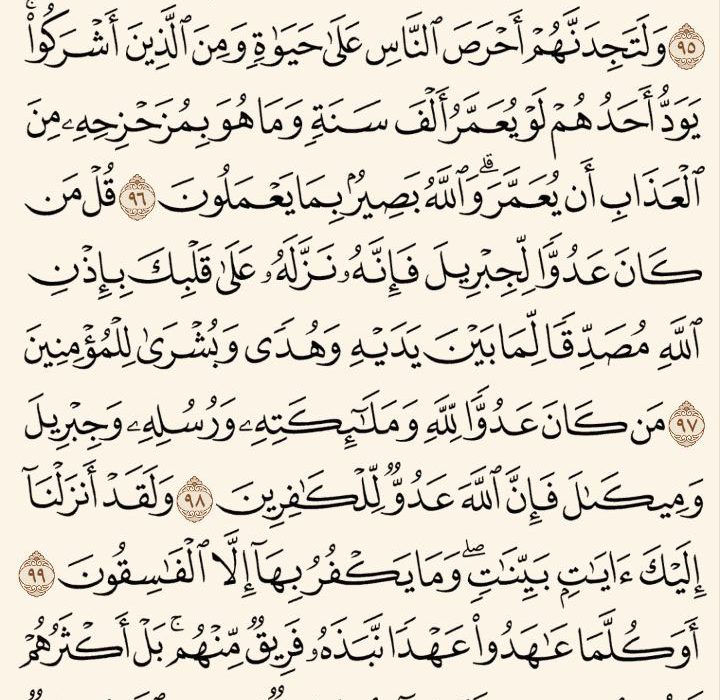 ٩٥ وَلَتَجِدَنَّهُمْ أَحْرَصَ ٱلنَّاسِ عَلَىٰ حَيَوٰةٍ وَمِنَ ٱلَّذِينَ أَشْرَكُوا۟ۚ
يَوَدُّ أَحَدُهُمْ لَوْ يُعَمَّرُ أَلْفَ سَنَةٍ وَمَا هُوَ بِمُزَحْزِحِهِۦ مِنَ
ٱلْعَذَابِ أَن يُعَمَّرَۗ وَٱللَّهُ بَصِيرٌۢ بِمَا يَعْمَلُونَ ٩٦ قُلْ مَن
كَانَ عَدُوًّا لِّجِبْرِيلَ فَإِنَّهُۥ نَزَّلَهُۥ عَلَىٰ قَلْبِكَ بِإِذْنِ
ٱللَّهِ مُصَدِّقًا لِّمَا بَيْنَ يَدَيْهِ وَهُدًى وَبُشْرَىٰ لِلْمُؤْمِنِينَ
٩٧ مَن كَانَ عَدُوًّا لِّلَّهِ وَمَلَـٰٓئِكَتِهِۦ وَرُسُلِهِۦ وَجِبْرِيلَ
وَمِيكَىٰلَ فَإِنَّ ٱللَّهَ عَدُوٌّ لِّلْكَـٰفِرِينَ ٩٨ وَلَقَدْ أَنزَلْنَآ
إِلَيْكَ ءَايَـٰتٍۭ بَيِّنَـٰتٍۖ وَمَا يَكْفُرُ بِهَآ إِلَّا ٱلْفَـٰسِقُونَ ٩٩
أَوَكُلَّمَا عَـٰهَدُوا۟ عَهْدًا نَّبَذَهُۥ فَرِيقٌ مِّنْهُمۚ بَلْ أَكْثَرُهُمْ